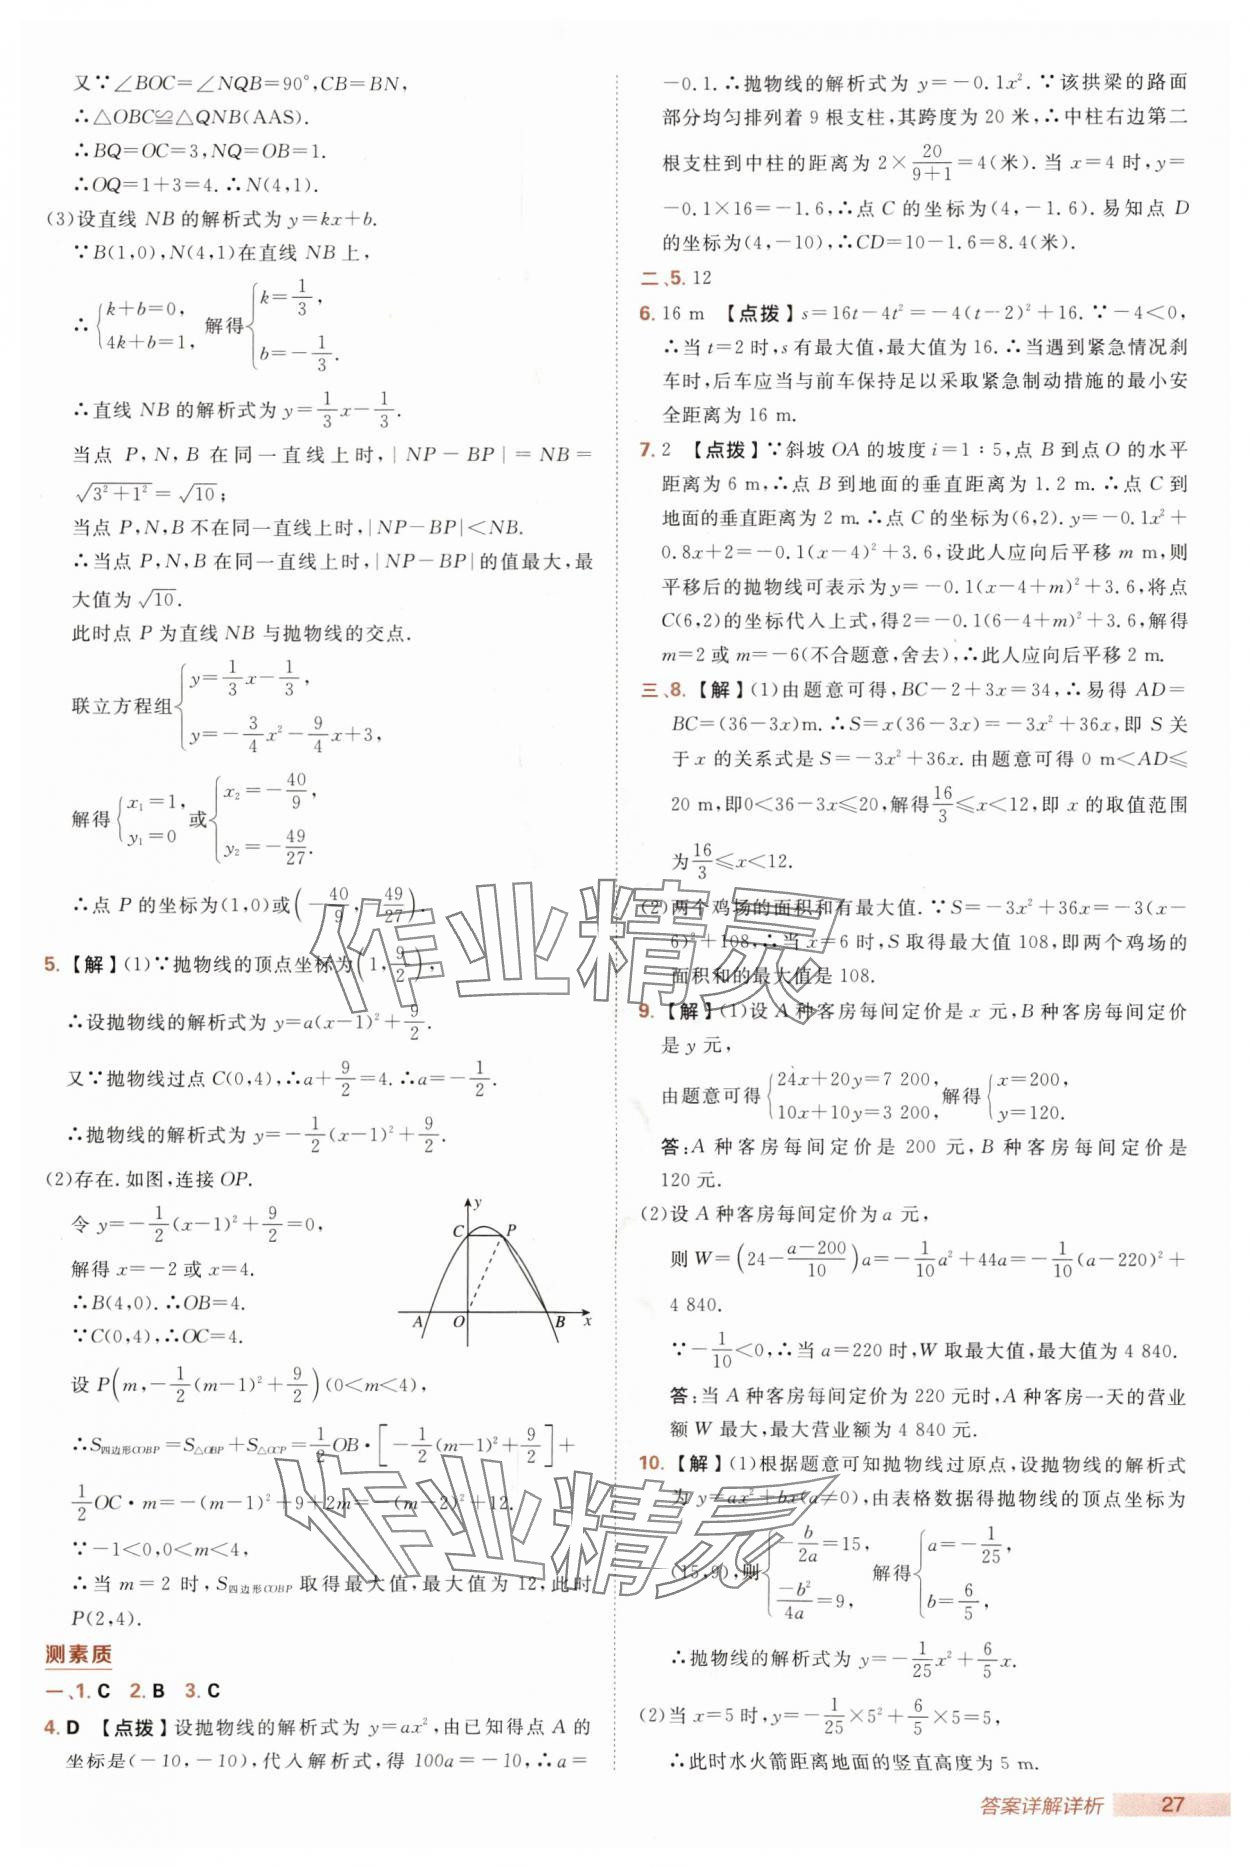 又∵∠BOC=∠NQB=90°,CB=BN,
∴△OBC≌△QNB(AAS).
∴BQ=OC=3,NQ=OB=1.
∴OQ=1+3=4.∴N(4,1).
(3)设直线 NB 的解析式为 y=kx+b.
∵B(1,0),N(4,1)在直线 NB 上,
∴{k+b=0, 4k+b=1, 解得{k=1/3, b=-1/3.
∴直线 NB 的解析式为 y=1/3x-1/3.
当点 P,N,B 在同一直线上时,|NP-BP|=NB=
√(3²+1²)=√10;
当点 P,N,B 不在同一直线上时,|NP-BP|<NB.
∴当点 P,N,B 在同一直线上时,|NP-BP|的值最大,最
大值为√10.
此时点 P 为直线 NB 与抛物线的交点.
联立方程组{y=1/3x-1/3, y=-3/4x²-9/4x+3,
解得{x₁=1, y₁=0 或{x₂=-40/9, y₂=-49/27.
∴点 P 的坐标为(1,0)或(-40/9,-49/27).
5.【解】(1)∵抛物线的顶点坐标为(1,9/2),
∴设抛物线的解析式为 y=a(x-1)²+9/2.
又∵抛物线过点 C(0,4),∴a+9/2=4.∴a=-1/2.
∴抛物线的解析式为 y=-1/2(x-1)²+9/2.
(2)存在.如图,连接 OP.
令 y=-1/2(x-1)²+9/2=0,
解得 x=-2 或 x=4.
∴B(4,0).∴OB=4.
∵C(0,4),∴OC=4.
y
C
P
A
O
B
x
设 P(m,-1/2(m-1)²+9/2)(0<m<4),
∴S四边形COBP=S△OBP+S△OCP=1/2OB·[-1/2(m-1)²+9/2]+
1/2OC·m=-(m-1)²+9+2m=-(m-2)²+12.
∵-1<0,0<m<4,
∴当 m=2 时,S四边形COBP取得最大值,最大值为 12,此时
P(2,4).
测素质
一、1. C 2. B 3. C
4. D 【点拨】设抛物线的解析式为 y=ax²,由已知得点 A 的
坐标是(-10,-10),代入解析式,得 100a=-10,∴a=
-0.1.∴抛物线的解析式为 y=-0.1x².∵该拱梁的路面
部分均匀排列着 9 根支柱,其跨度为 20 米,∴中柱右边第二
根支柱到中柱的距离为 2×20/(9+1)=4(米).当 x=4 时,y=
-0.1×16=-1.6,∴点 C 的坐标为(4,-1.6).易知点 D
的坐标为(4,-10),∴CD=10-1.6=8.4(米).
二、5. 12
6. 16 m 【点拨】s=16t-4t²=-4(t-2)²+16.∵-4<0,
∴当 t=2 时,s 有最大值,最大值为 16.∴当遇到紧急情况刹
车时,后车应当与前车保持足以采取紧急制动措施的最小安
全距离为 16 m.
7. 2 【点拨】∵斜坡 OA 的坡度 i=1∶5,点 B 到点 O 的水平
距离为 6 m,∴点 B 到地面的垂直距离为 1.2 m.∴点 C 到
地面的垂直距离为 2 m.∴点 C 的坐标为(6,2).y=-0.1x²+
0.8x+2=-0.1(x-4)²+3.6,设此人应向后平移 m m,则
平移后的抛物线可表示为 y=-0.1(x-4+m)²+3.6,将点
C(6,2)的坐标代入上式,得2=-0.1(6-4+m)²+3.6,解得
m=2或 m=-6(不合题意,舍去),∴此人应向后平移 2 m.
三、8.【解】(1)由题意可得,BC-2+3x=34,∴易得 AD=
BC=(36-3x)m.∴S=x(36-3x)=-3x²+36x,即 S 关
于 x 的关系式是 S=-3x²+36x.由题意可得 0 m<AD≤
20 m,即0<36-3x≤20,解得16/3≤x<12,即 x 的取值范围
为16/3≤x<12.
(2)两个鸡场的面积和有最大值.∵S=-3x²+36x=-3(x-
6)²+108,∴当 x=6 时,S 取得最大值 108,即两个鸡场的
面积和的最大值是 108.
9.【解】(1)设 A 种客房每间定价是 x 元,B 种客房每间定价
是 y 元,
由题意可得{24x+20y=7 200, 10x+10y=3 200, 解得{x=200, y=120.
答:A 种客房每间定价是 200 元,B 种客房每间定价是
120 元.
(2)设 A 种客房每间定价为 a 元,
则 W=(24-(a-200)/10)a=-1/10a²+44a=-1/10(a-220)²+
4 840.
∵-1/10<0,∴当 a=220 时,W 取最大值,最大值为 4 840.
答:当 A 种客房每间定价为 220 元时,A 种客房一天的营业
额 W 最大,最大营业额为 4 840 元.
10.【解】(1)根据题意可知抛物线过原点,设抛物线的解析式
为 y=ax²+bx(a≠0),由表格数据得抛物线的顶点坐标为
(15,9),则{-b/2a=15, -b²/4a=9, 解得{a=-1/25, b=6/5,
∴抛物线的解析式为 y=-1/25x²+6/5x.
(2)当 x=5 时,y=-1/25×5²+6/5×5=5,
∴此时水火箭距离地面的竖直高度为 5 m.
作业精灵
作业精灵
答案详解详析 27